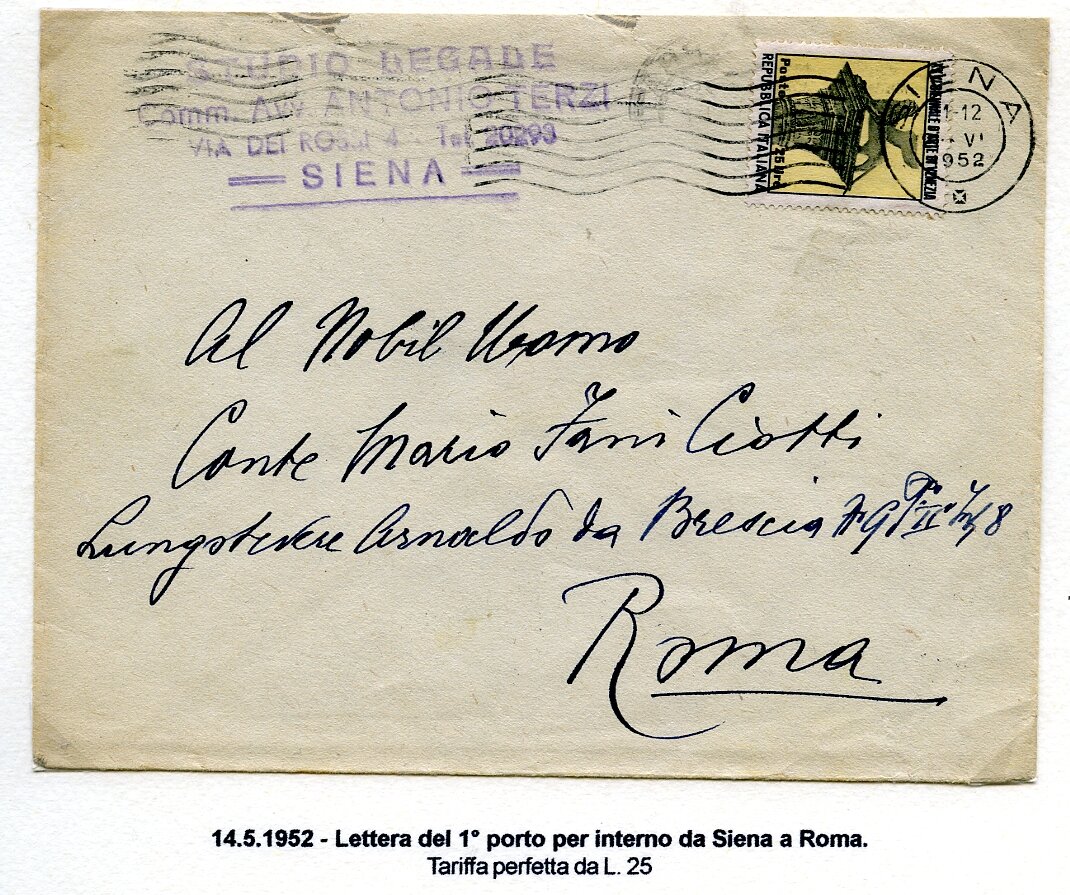 STUDIO LEGALE
Comm. Avv. ANTONIO TERZI
VIA DEI ROSSI 4 - Tel. 20293
SIENA
Poste 25 lire
REPUBBLICA ITALIANA
BIENNALE D'ARTE DI VENEZIA
1-12
VI
1952
Al Nobil Uomo
Conte Mario Fani Ciotti
Lungotevere Arnaldo da Brescia N 9
Roma
14.5.1952 - Lettera del 1° porto per interno da Siena a Roma.
Tariffa perfetta da L. 25